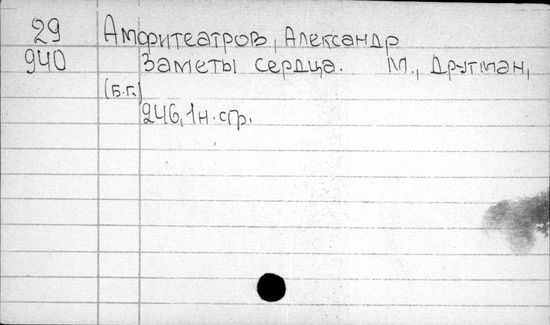 29 Амфитеатров, Александр
940 Заметы сердца. М., Друтман,
(б.г.)
246, 1н. стр.